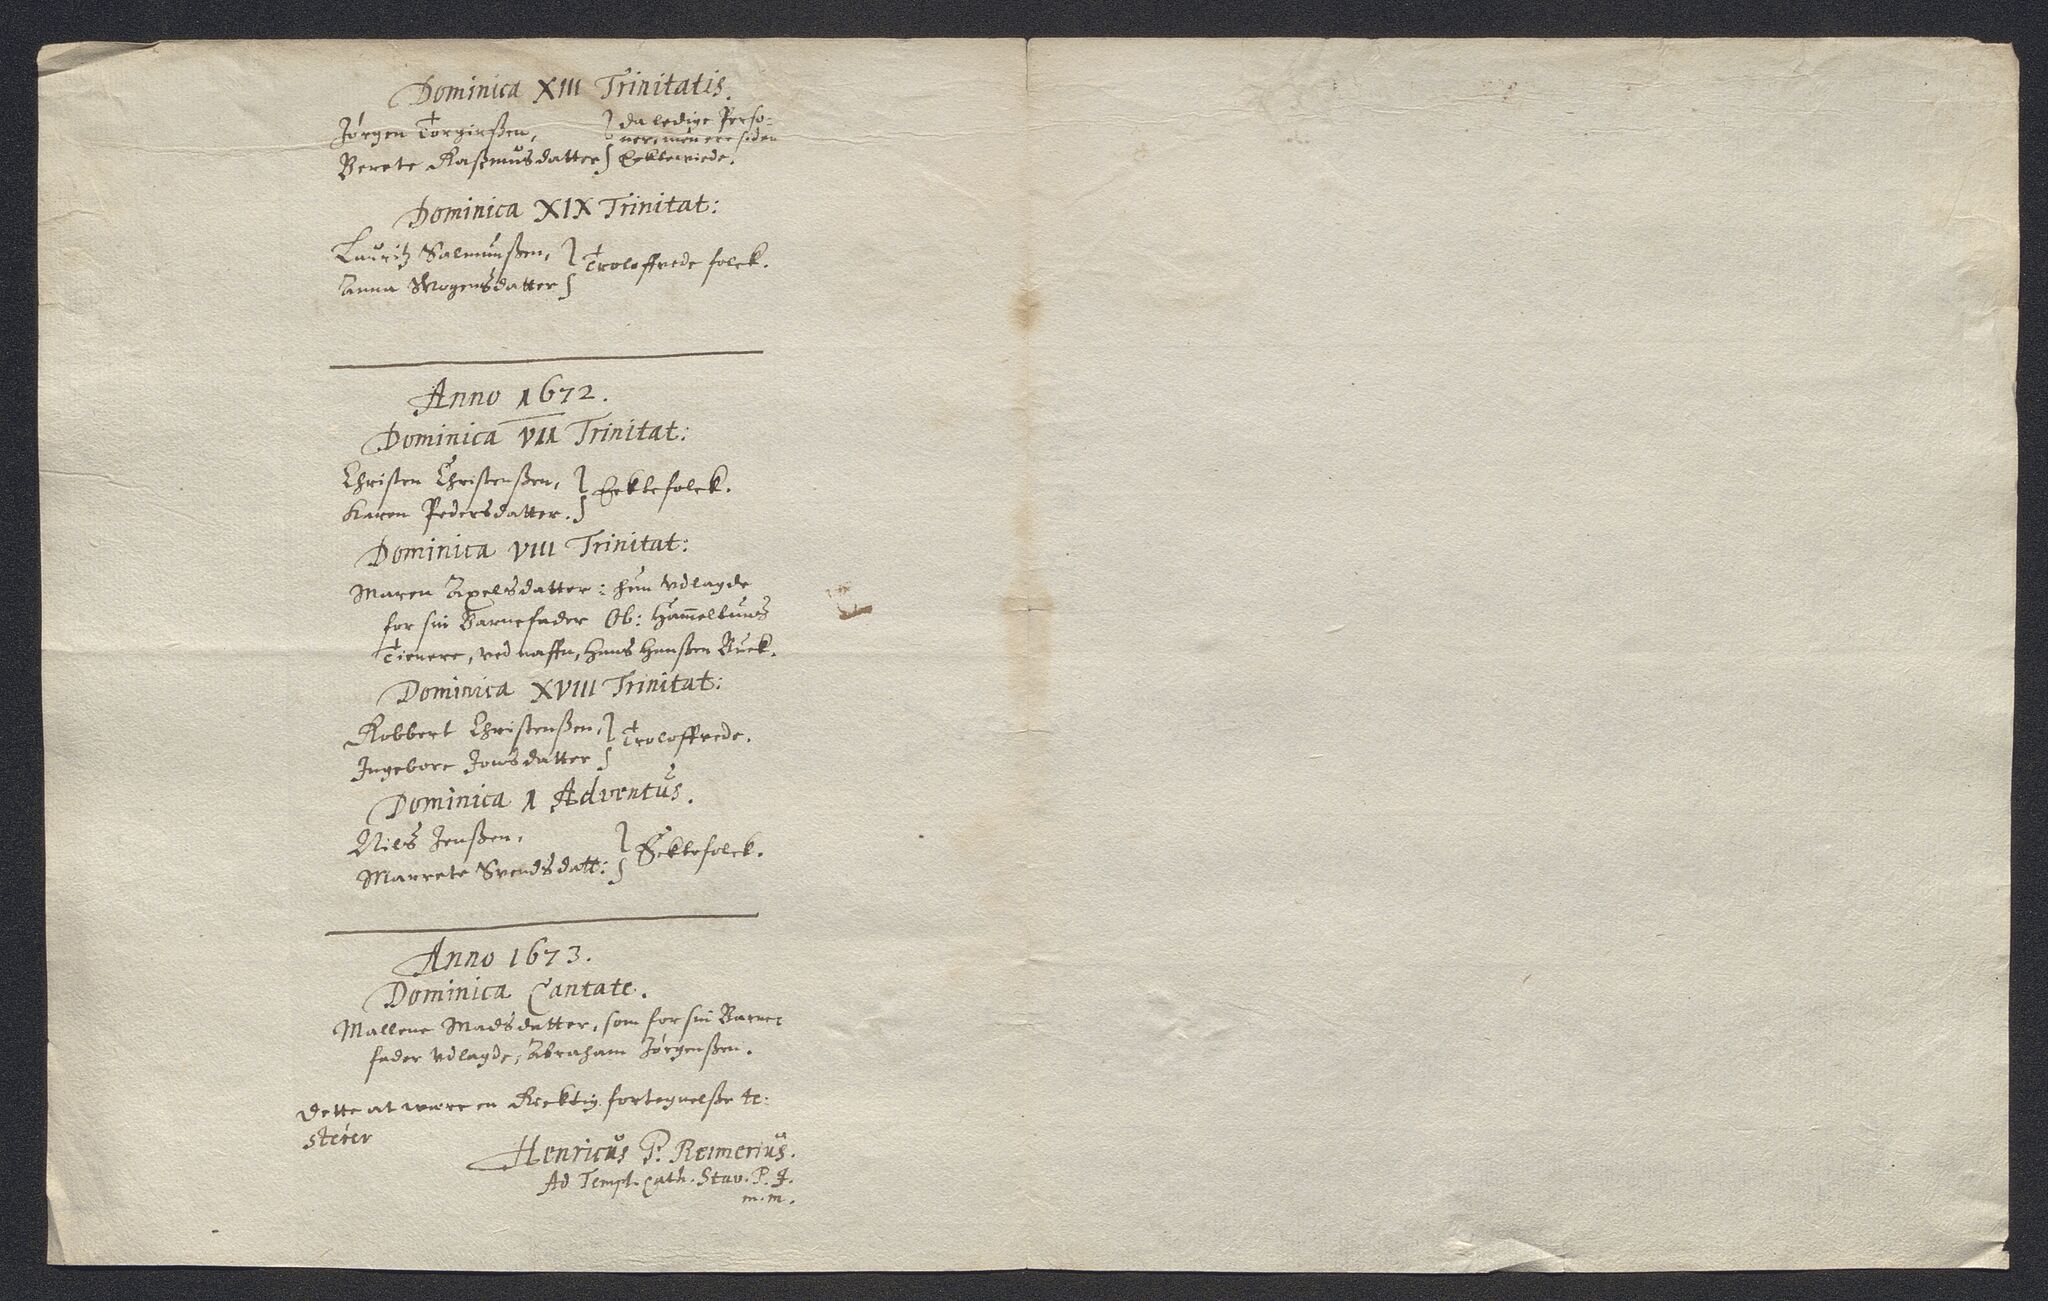 Dominica XIII Trinitatis.
Jørgen Torgierßen, } da ledige Perso-
ner, men ere siden
Berete Rasmusdatter } Ecteviede.
Dominica XIX Trinitat:
Lauritz Salmunßen, } Troloffvede folck.
Anna Mogensdatter }
Anno 1672.
Dominica VII Trinitat:
Christen Christenßen, } Ectefolck.
Karen Pedersdatter. }
Dominica VIII Trinitat:
Maren Axelsdatter: hun udlagde
for sin Barnefader Ob: Hammeltuns
Tienere, ved naffn, Hans Hanßen Buck.
Dominica XVIII Trinitat:
Robbert Christenßen, } Troloffvede.
Ingebore Jonsdatter }
Dominica 1 Adventus.
Nils Jenßen, } Ectefolck.
Marrete Svendsdatt: }
Anno 1673.
Dominica Cantate.
Mallene Madsdatter, som for sin Barne-
fader udlagde, Abraham Jørgenßen.
Dette at være en Recktig fortegnelße te-
sterer
Henricus P. Reimerius.
Ad Templ. Cath. Stav. P. J.
m.m.